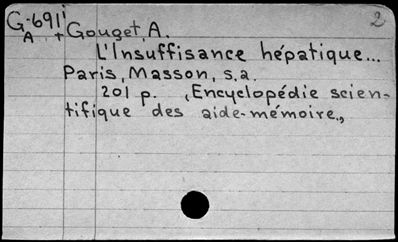 G-691i 2
A + Gouget, A.
L'Insuffisance hépatique...
Paris, Masson, s.a.
201 p. , Encyclopédie scien-
tifique des aide-mémoire.,